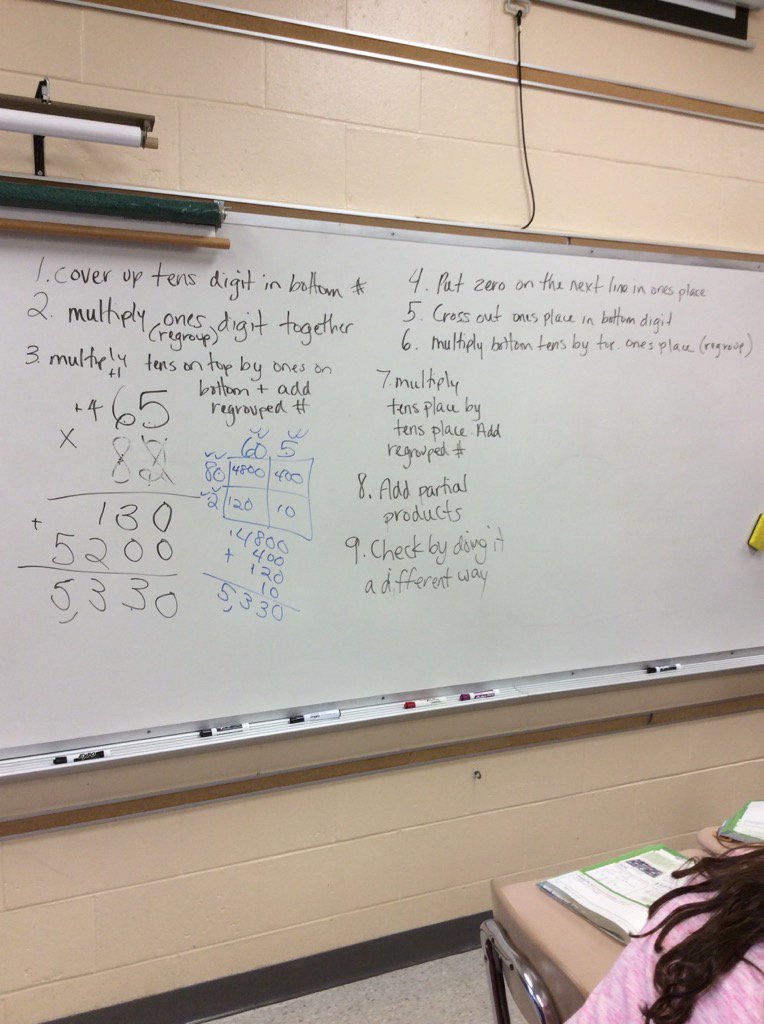 1. cover up tens digit in bottom #
2. multiply ones digit together
(regroup)
3. multiply tens on top by ones on
bottom + add
regrouped #
+1
+4 65
x 82
+ 130
5200
5,330
60 5
80 4800 400
2 120 10
4800
+ 400
120
10
5,330
4. Put zero on the next line in ones place
5. Cross out ones place in bottom digit
6. multiply bottom tens by top ones place (regroup)
7. multiply
tens place by
tens place. Add
regrouped #
8. Add partial
products
9. Check by doing it
a different way